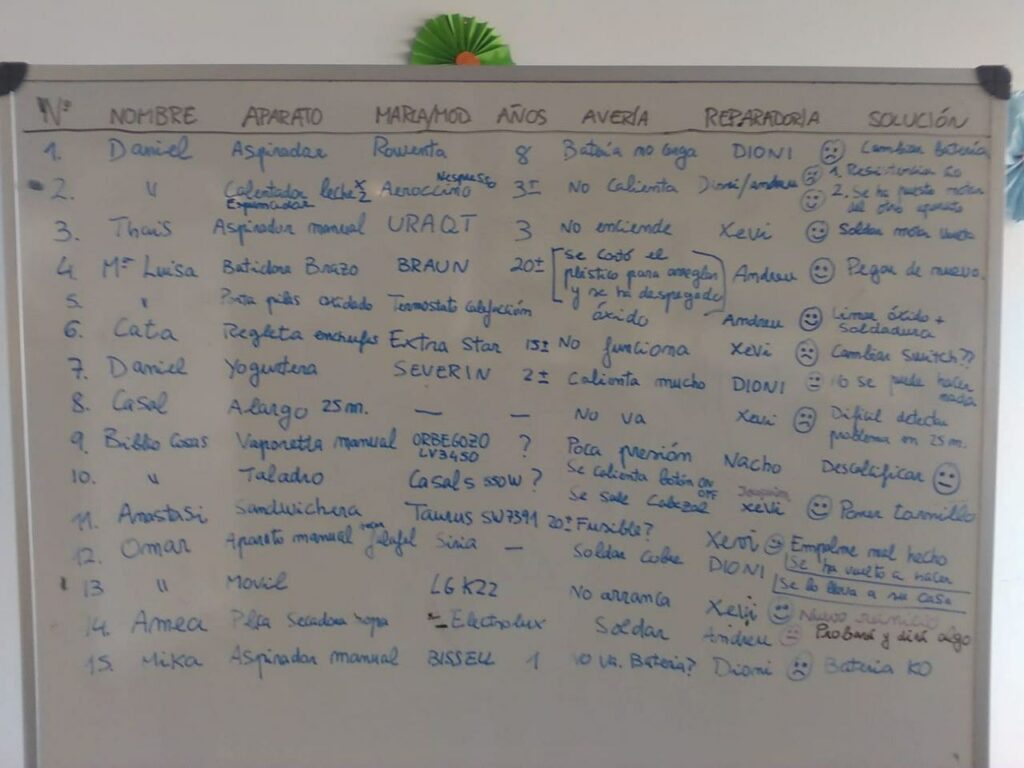 Nº NOMBRE APARATO MARCA/MOD AÑOS AVERÍA REPARADOR/A SOLUCIÓN
1. Daniel Aspirador Rowenta 8 Batería no carga DIONI Cambiar batería
2. " Calentador leche x2 Espumador Aeroccino Nespresso 3± No Calienta Dioni/Andreu 1. Resistencia KO
2. Se ha puesto motor del otro aparato
3. Thais Aspirador manual URAQT 3 No enciende Xevi Soldar motor
4. Mª Luisa Batidora Brazo BRAUN 20± [se cortó el plástico para arreglar y se ha despegado] Andreu Pegar de nuevo.
5. " Porta pilas oxidado Termostato calefacción óxido Andreu Limar óxido + Soldadura
6. Cata Regleta enchufes Extra Star 15± No funciona Xevi Cambiar switch??
7. Daniel Yogurtera SEVERIN 2± Calienta mucho DIONI No se puede hacer nada
8. Casal Alargo 25 m. — — No va Xevi Difícil detectar problema en 25 m.
9. Biblio Cosas Vaporetta manual ORBEGOZO LV3450 ? Poca presión Nacho Descalcificar
10. " Taladro Casals 550W ? Se calienta botón ON OFF
Se sale Cabezal Joaquim Xevi Poner tornillo
11. Anastasi Sandwichera Taurus SW7391 20± Fusible? Xevi Empalme mal hecho
Se ha vuelto a hacer
12. Omar Aparato manual falafel Siria — Soldar cobre DIONI Se lo lleva a su casa
13 " Movil LG K22 No arranca Xevi Nuevo
14. Amea Placa Secadora ropa Electrolux Soldar Andreu Probará y dirá algo
15. Mika Aspirador manual BISSELL 1 No va. Batería? Dioni Batería KO